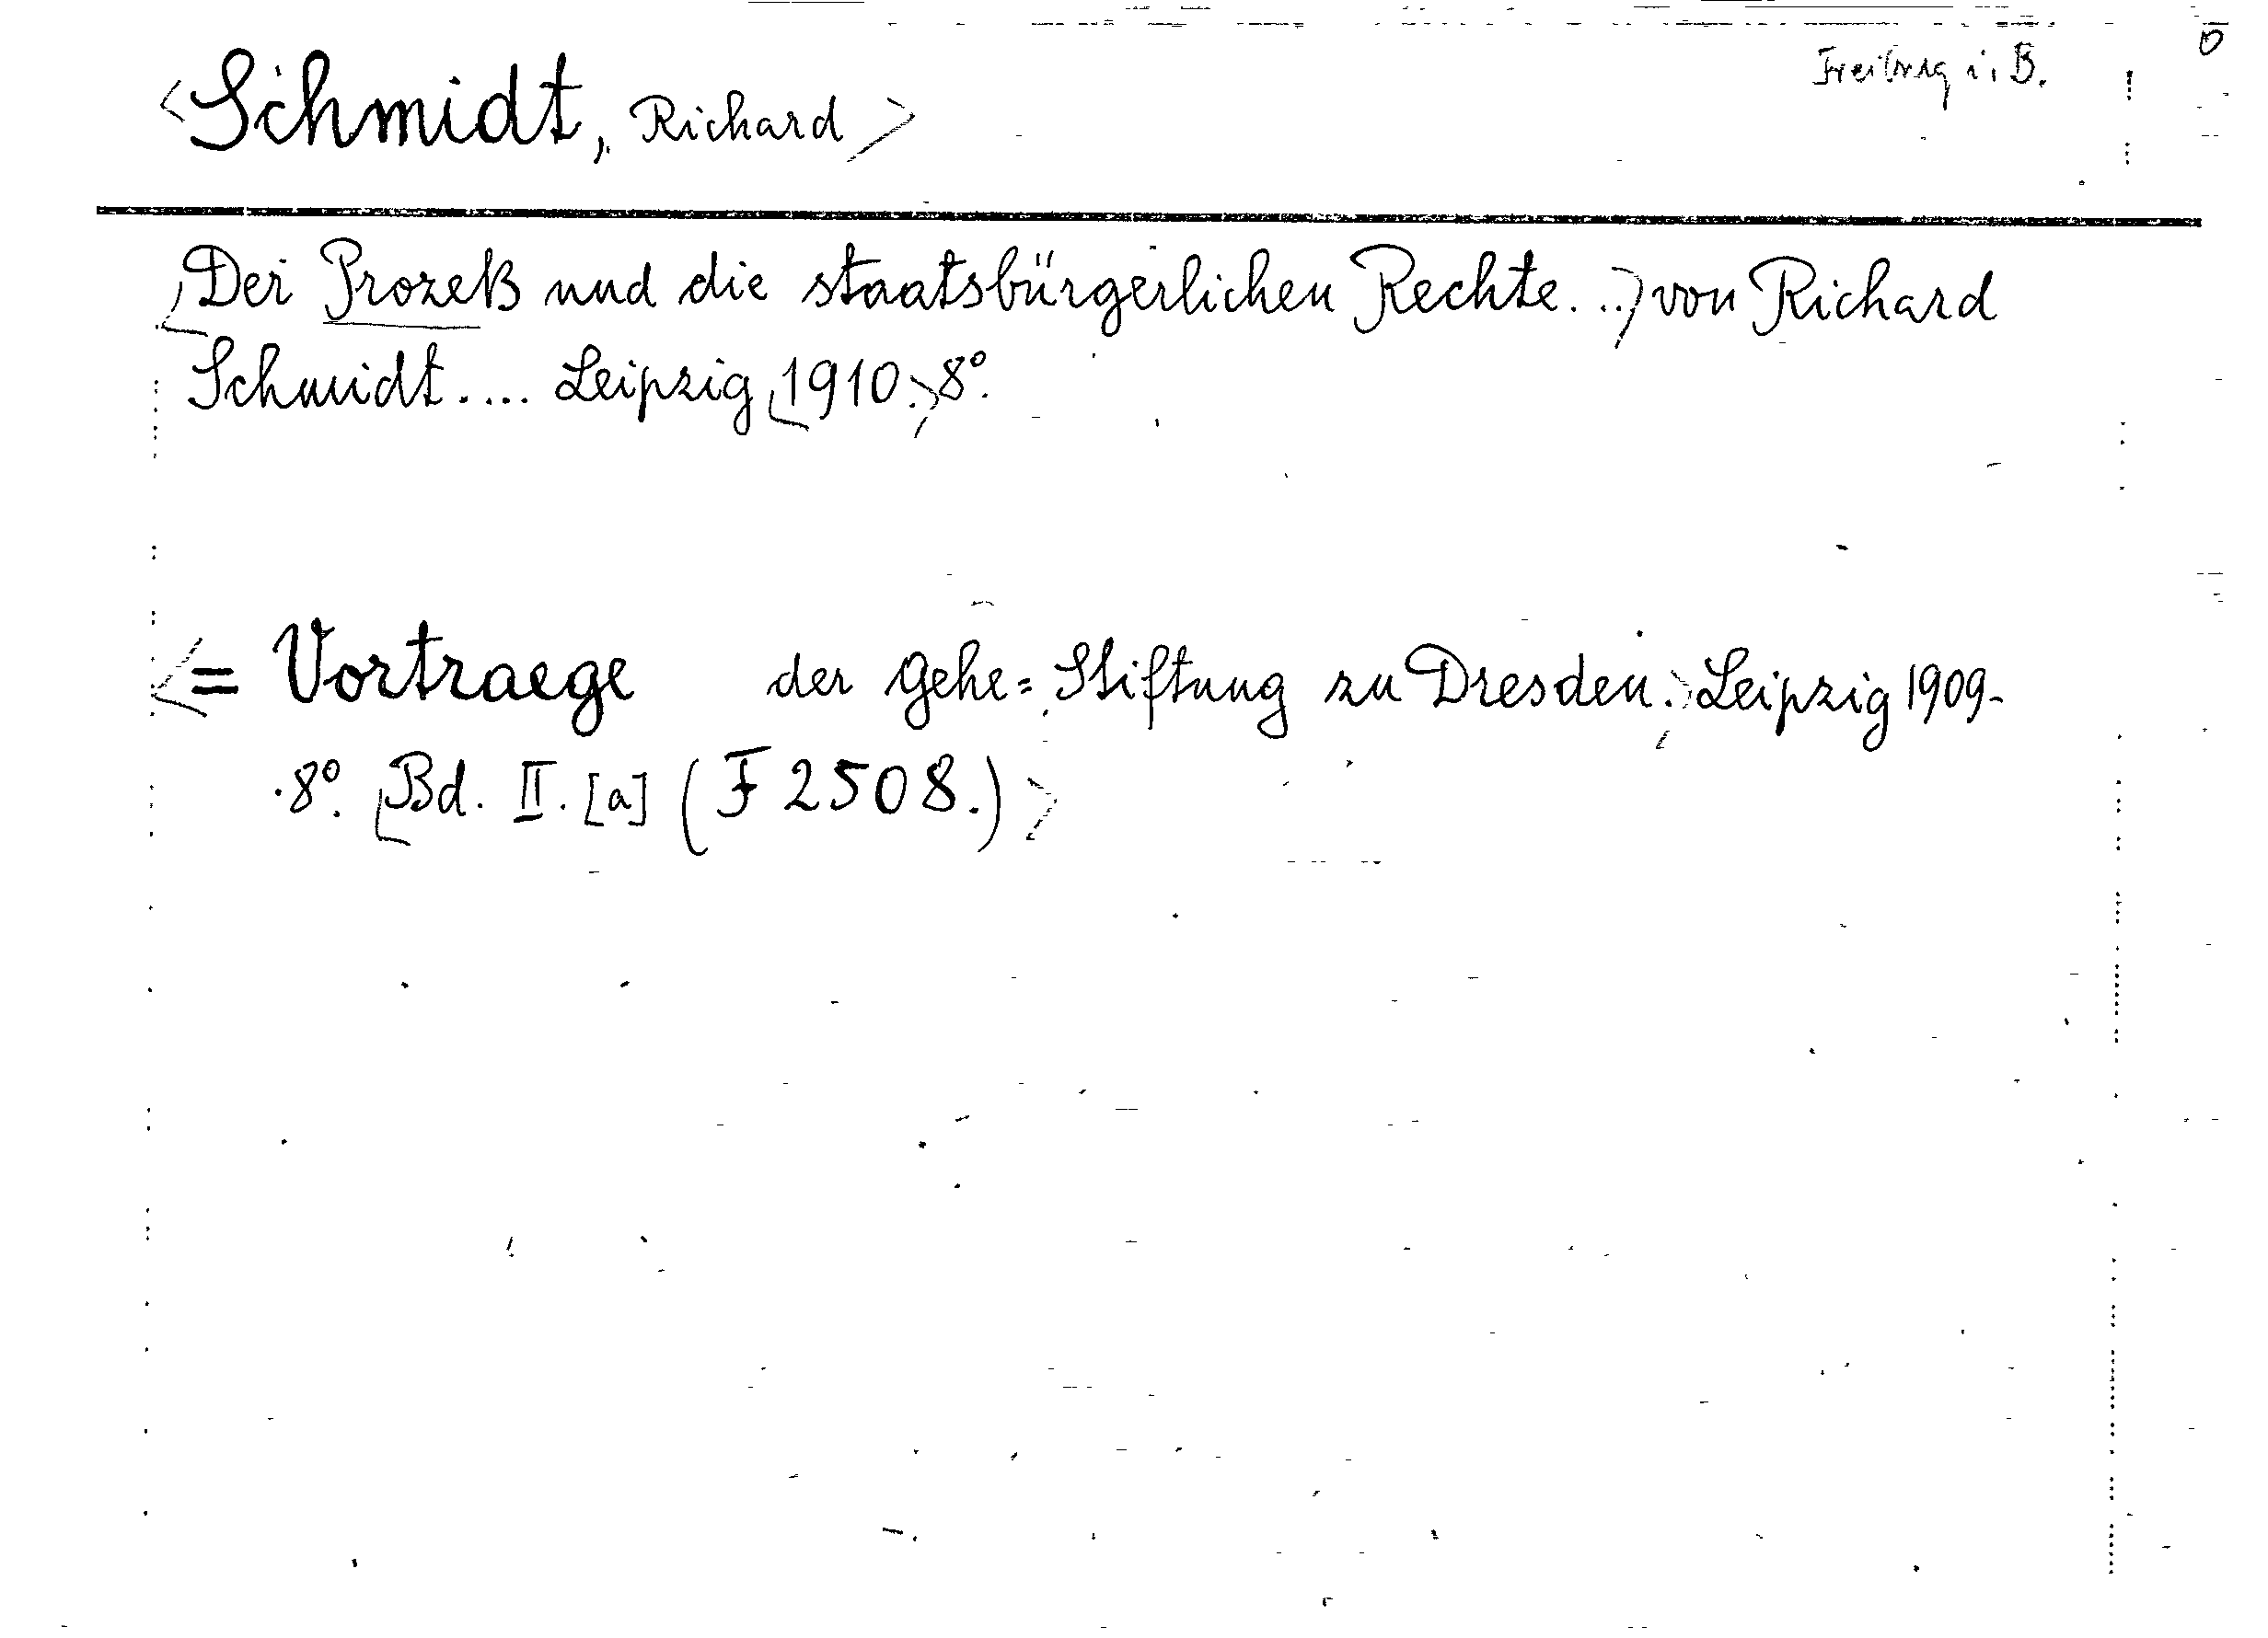 Freiburg i. B.
<Schmidt, Richard>
<Der Prozeß und die staatsbürgerlichen Rechte...> von Richard
Schmidt.... Leipzig <1910.> 8°.
<= Vortraege der Gehe=Stiftung zu Dresden.> Leipzig 1909-
8°. <Bd. II. [a] (F 2508.)>